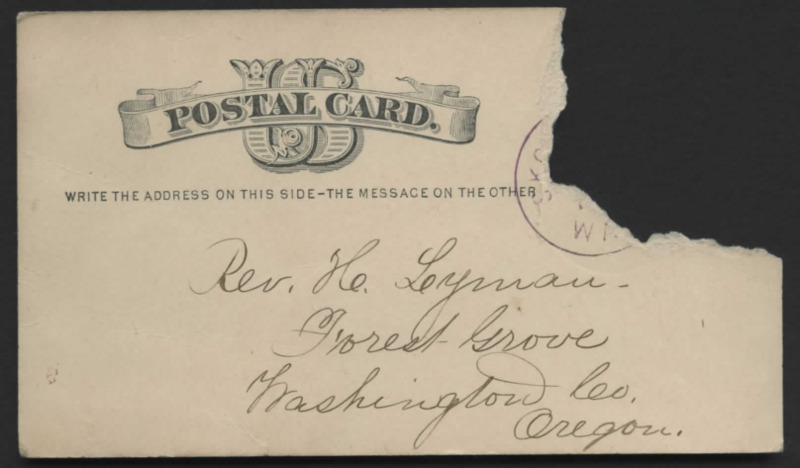 US
POSTAL CARD.
WRITE THE ADDRESS ON THIS SIDE-THE MESSAGE ON THE OTHER
Rev. H. Lyman-
Forest Grove
Washington Co.
Oregon.